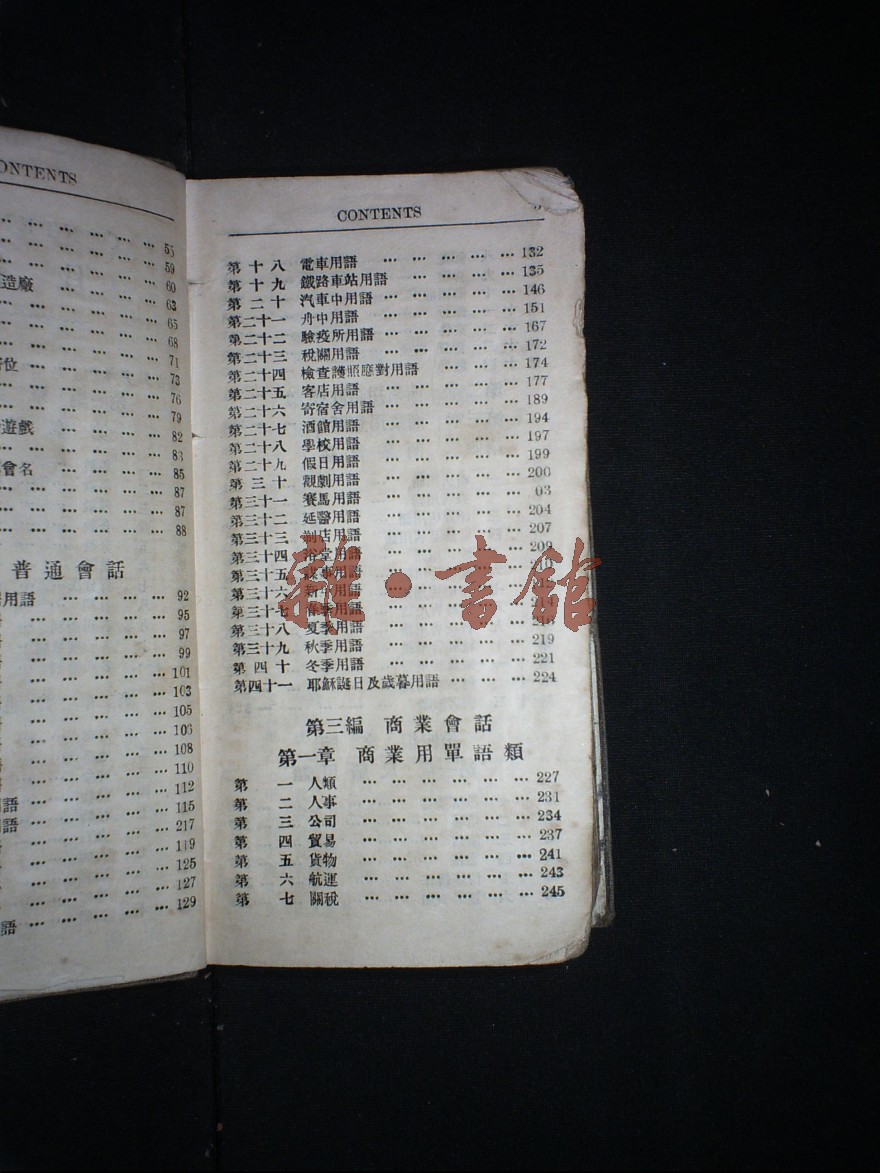 CONTENTS
55
59
造廠 60
63
65
68
71
位 73
76
79
遊戲 82
83
會名 85
87
87
88
普通會話
用語 … … … … … 92
95
97
99
101
103
105
106
108
110
112
語 115
語 217
119
125
127
129
語
CONTENTS
第十八 電車用語 … … … … … 132
第十九 鐵路車站用語 … … … … 135
第二十 汽車中用語 … … … … … 146
第二十一 舟中用語 … … … … … 151
第二十二 驗疫所用語 … … … … … 167
第二十三 稅關用語 … … … … … 172
第二十四 檢查護照應對用語 … … … 174
第二十五 客店用語 … … … … … 177
第二十六 寄宿舍用語 … … … … … 189
第二十七 酒館用語 … … … … … 194
第二十八 學校用語 … … … … … 197
第二十九 假日用語 … … … … … 199
第三十 觀劇用語 … … … … … 200
第三十一 賽馬用語 … … … … … 03
第三十二 延醫用語 … … … … … 204
第三十三 店用語 … … … … … 207
第三十四 浴堂用語 … … … … … 209
第三十五 事用語
第三十六 新年用語
第三十七 春季用語
第三十八 夏季用語
第三十九 秋季用語 … … … … … 219
第四十 冬季用語 … … … … … 221
第四十一 耶穌誕日及歲暮用語 … … … 224
第三編 商業會話
第一章 商業用單語類
第一 人類 … … … … … … 227
第二 人事 … … … … … … 231
第三 公司 … … … … … … 234
第四 貿易 … … … … … … 237
第五 貨物 … … … … … … 241
第六 航運 … … … … … … 243
第七 關稅 … … … … … … 245
雜·書館